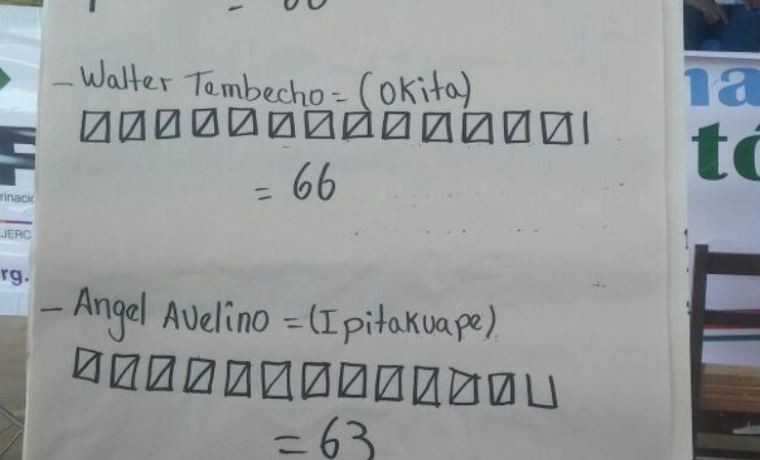 - Walter Tambecho = (Okita)
= 66
- Angel Avelino = (Ipitakuape)
= 63
rinaci
JERC
rg.
na
tó